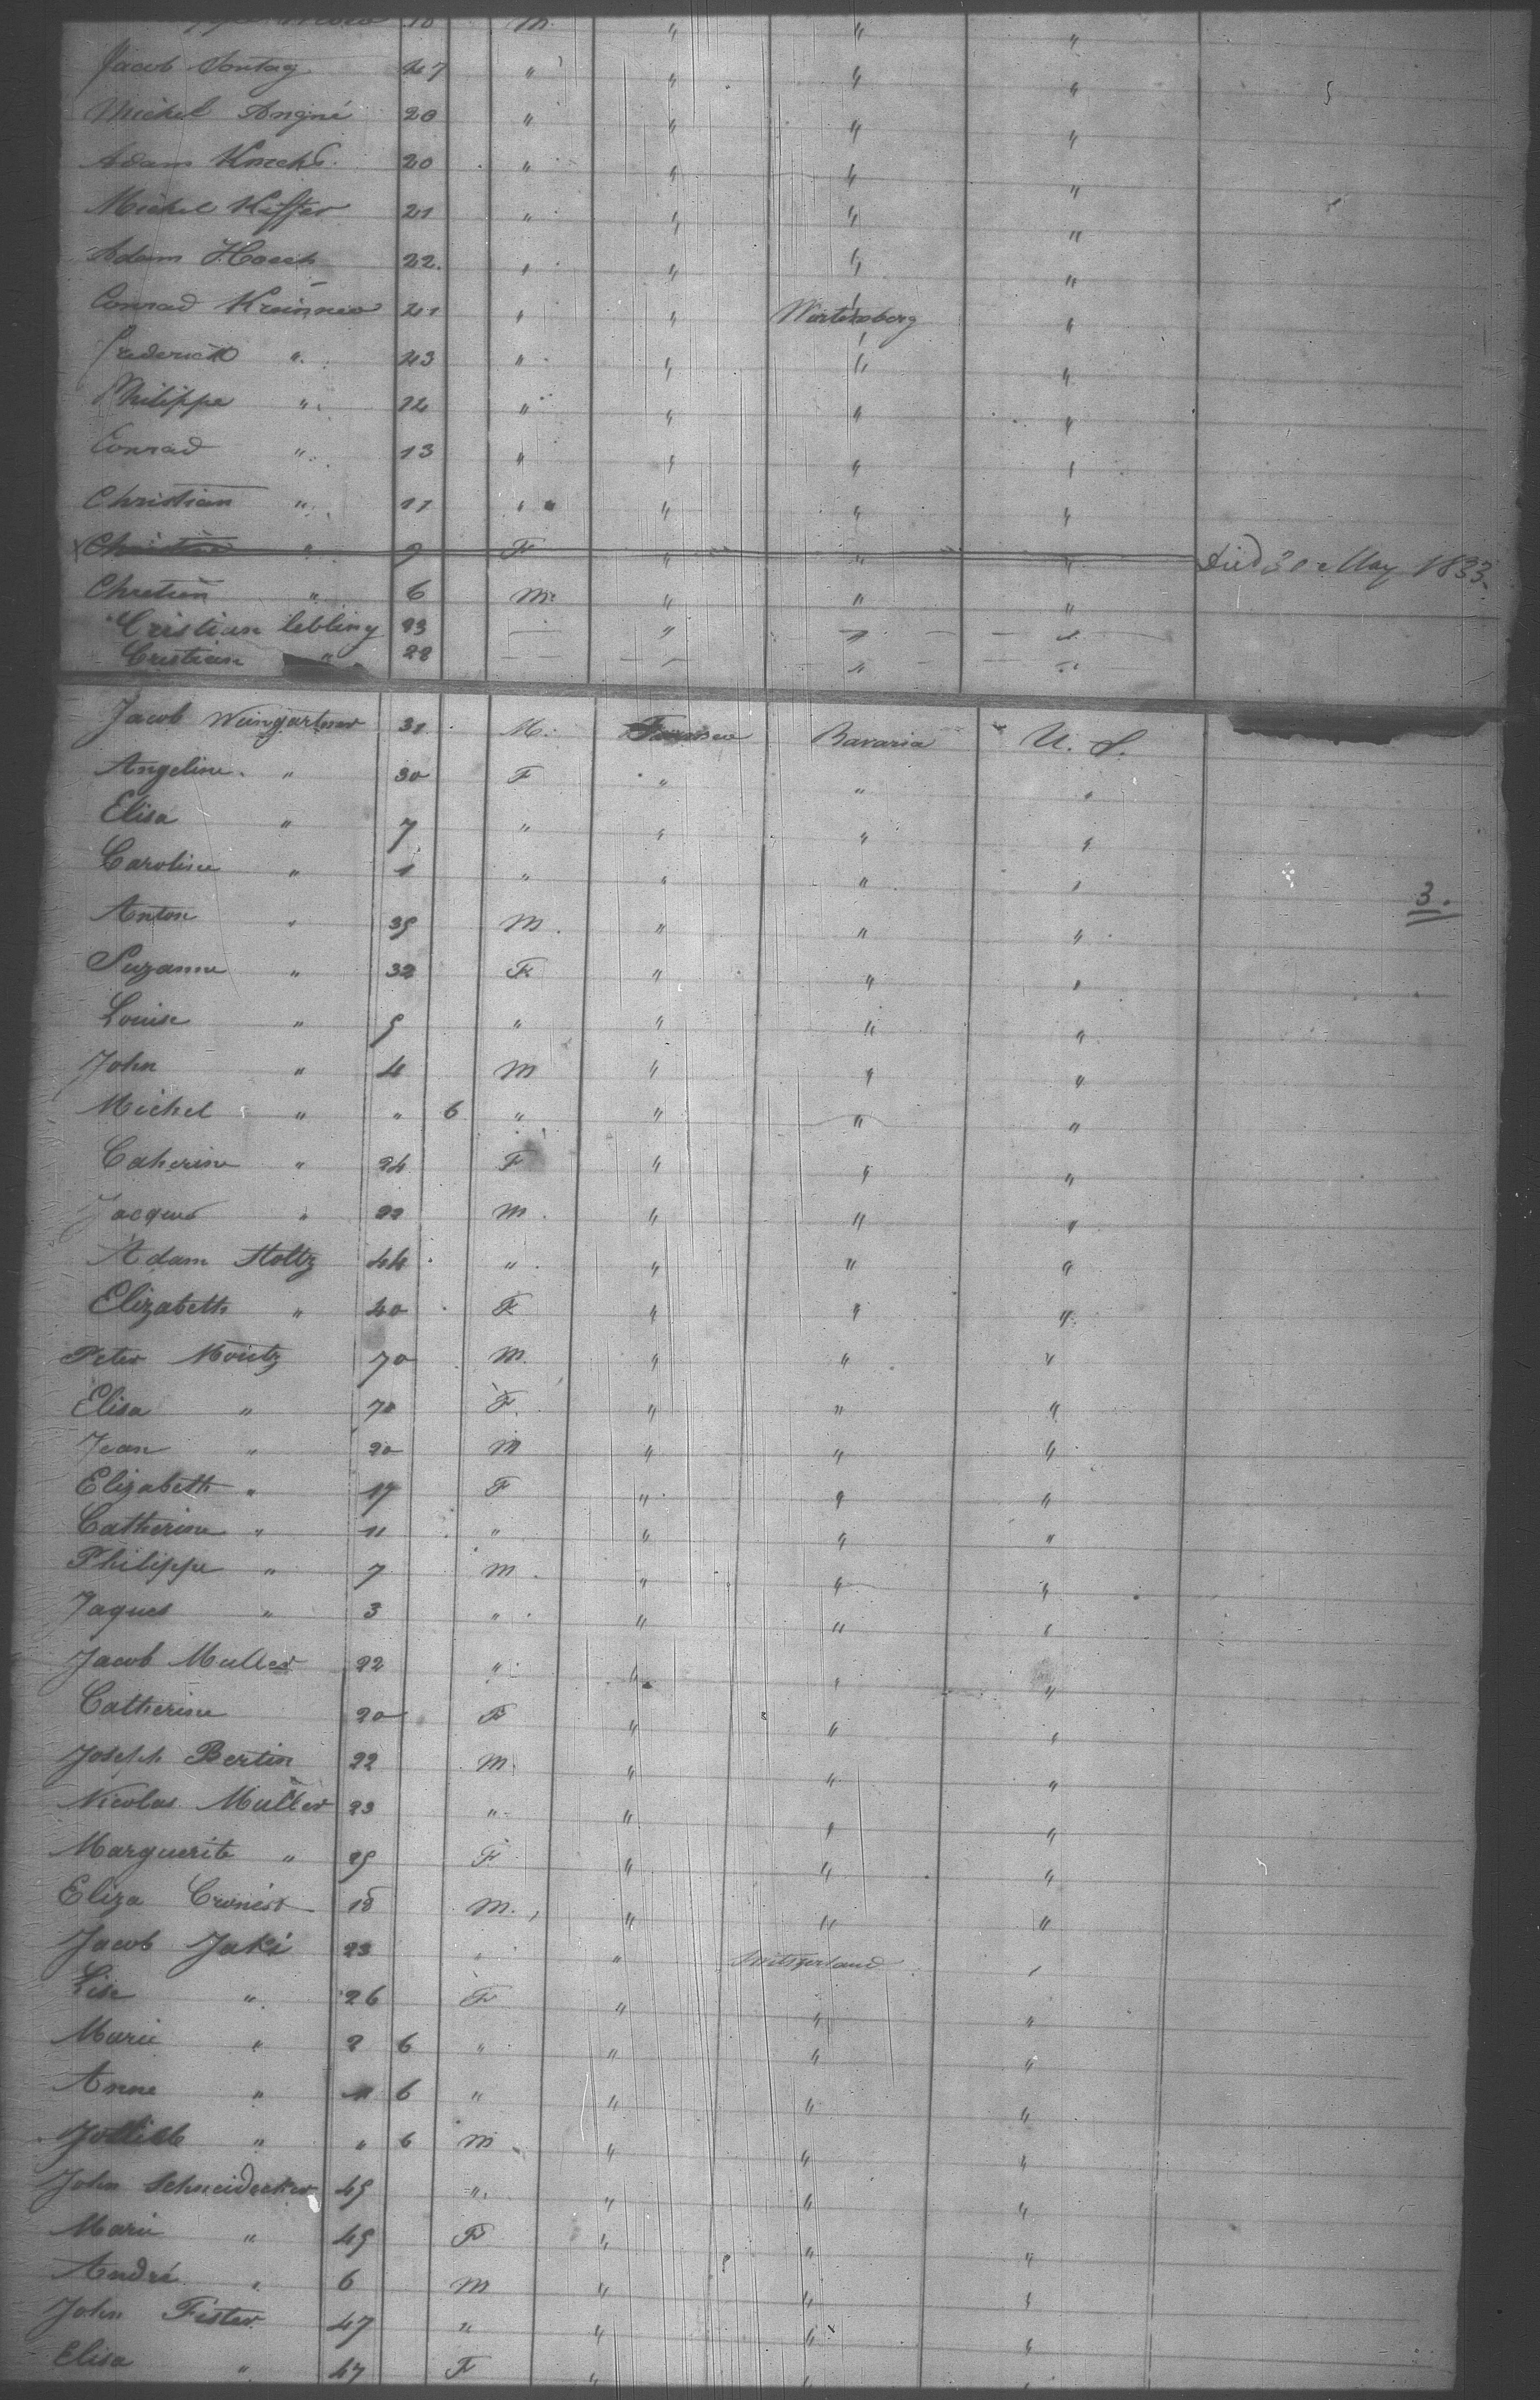 M. " " "
Jacob Sontag 47 " " " "
Michel Angné 20 " " " "
Adam Knecht 20 " " " "
Michel Kiffer 21 " " " "
Adam Hoech 22. " " " "
Conrad 41 " " Wurtemberg "
Frederick " 43 " " " "
Philippe " 12 " " " "
Conrad " 13 " " " "
Christian " 11 " " " "
Christine " 9 F " " " Died 30 May 1833.
Chretien " 6 M. " " "
Cristian Lebling 23 " " "
Cristian " 28 " " "
Jacob Weingartner 31 M. Bavaria U. S.
Angeline " 30 F " " "
Elisa " 7 " " " "
Caroline " 1 " " " "
3.
Anton " 35 M. " " "
Suzanne " 32 F " " "
Louise " 5 " " " "
John " 4 M " " "
Michel " " 6 " " " "
Caherine " 24 F " " "
Jacques " 22 M. " " "
Adam Stoltz 44 " " " "
Elizabeth " 40 F " " "
Peter Moritz 70 M. " " "
Elisa " 70 F. " " "
Jean " 20 M " " "
Elizabeth " 17 F " " "
Catherine " 11 " " " "
Philippe " 7 M. " " "
Jaques " 3 " " " "
Jacob Muller 22 " " " "
Catherine 20 F " " "
Joseph Bertin 22 M. " " "
Nicolas Muller 23 " " " "
Marguerite " 25 F " " "
Eliza 18 M. " " "
Jacob Jaki 23 " " Switzerland "
Lise " 26 F " " "
Marie " 2 6 " " " "
Anne " 6 " " " "
" " 6 M " " "
John Schneidecker 45 " " " "
Marie " 45 F " " "
André " 6 M " " "
John Fister 47 " " " "
Elisa " 47 F " " "